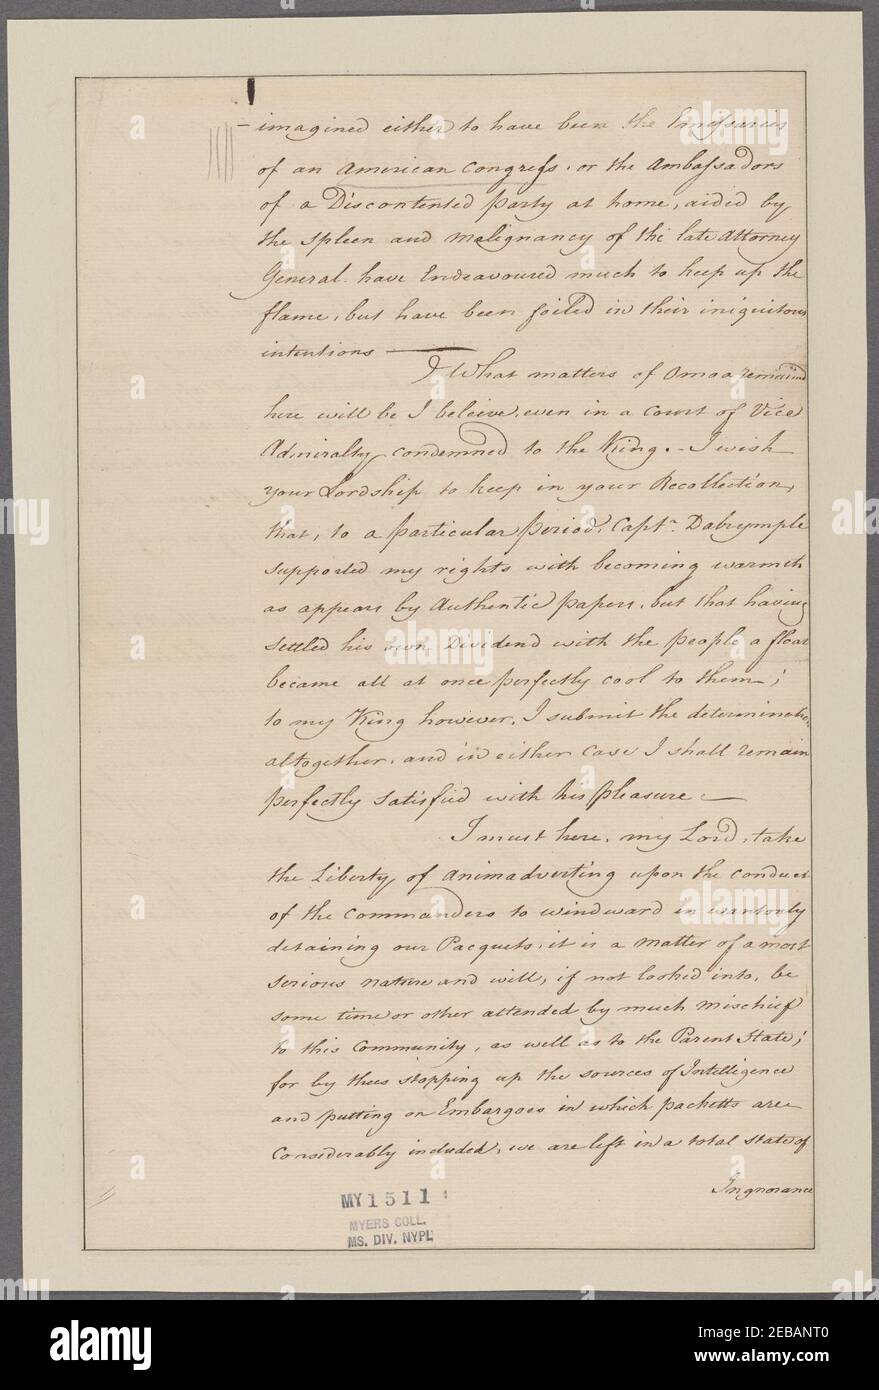 - imagined either to have been the Emissaries
of an American Congress, or the Ambassadors
of a Discontented party at home, aided by
the spleen and malignancy of the late Attorney
General have Endeavoured much to keep up the
flame, but have been foiled in their iniquitous
intentions —
What matters of Omoa remained
here will be I beleive, even in a Court of Vice
Admiralty condemned to the King. - I wish
your Lordship to keep in your Recollection,
that, to a particular period, Captn. Dalrymple
supported my rights with becoming warmth
as appears by Authentic papers, but that having
settled his own Dividend with the people a float
became all at once perfectly cool to them;
to my King however, I submit the determination
altogether, and in either case I shall remain
perfectly satisfied with his pleasure —
I must here, my Lord, take
the Liberty of animadverting upon the conduct
of the Commanders to windward in wantonly
detaining our Pacquets, it is a matter of a most
serious nature and will, if not looked into, be
some time or other attended by much mischief
to this Community, as well as to the Parent State;
for by thees stopping up the sources of Intelligence
and putting on Embargoes in which packetts are
Considerably included, we are left in a total state of
Ingnorance
MY 1511
MYERS COLL.
MS. DIV. NYPL
alamy
Image ID: 2EBANT0
www.alamy.com